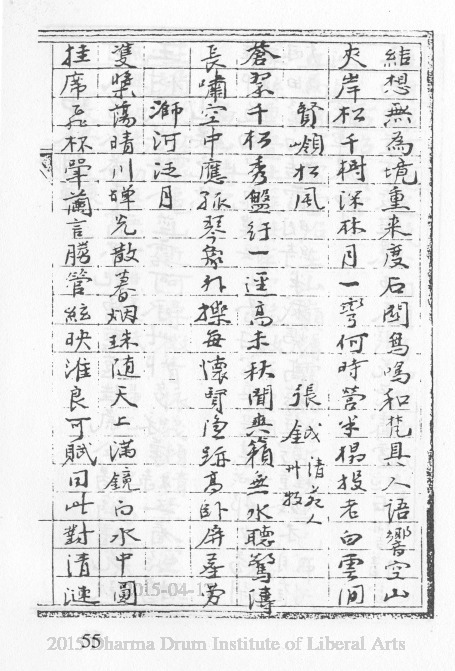 結想無為境重来度石關鳥鳴和梵具人語響空山
夾岸松千樹深林月一彎何時營半榻投老白雲間
賢嶺松風
張鉞 清苑人 州牧
蒼翠千松秀盤紆一逕高未秋聞爽籟無水聽驚濤
長嘯空中應孤琴象外操每懷賢隐跡高卧屏塵勞
溮河泛月
雙槳蕩晴川蟬光散暮烟珠随天上滿鏡向水中圓
挂席飛杯斝蘭言勝管絃映淮良可賦因此對清漣
55
2015 Dharma Drum Institute of Liberal Arts